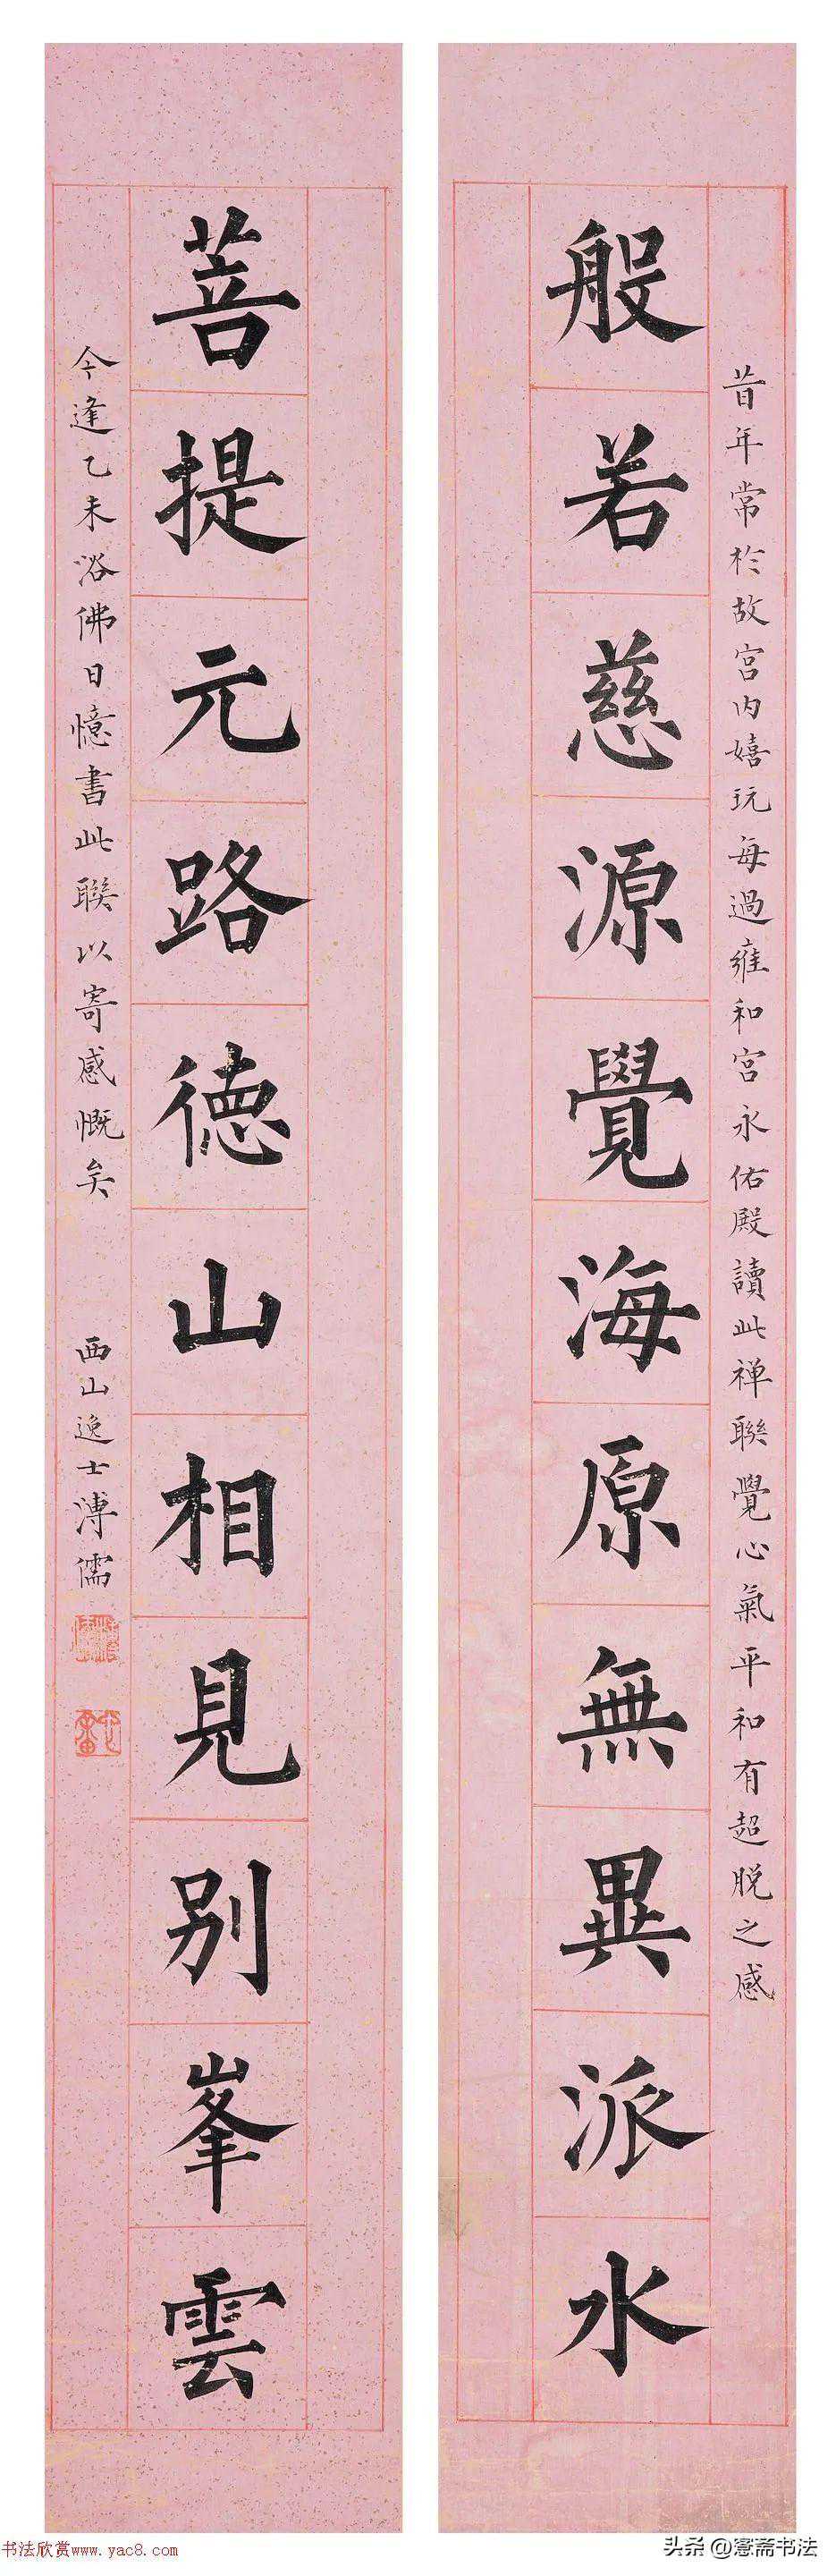 昔年常於故宮內嬉玩每過雍和宮永佑殿讀此禅聯覺心氣平和有超脫之感
般若慈源覺海原無異派水
菩提元路德山相見別峯雲
今逢乙未浴佛日憶書此聯以寄感慨矣
西山逸士溥儒
书法欣赏www.yac8.com
头条@愙斋书法